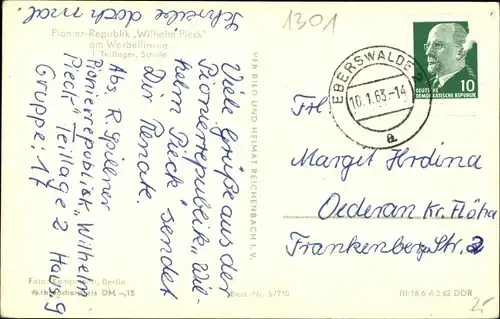 Schreibe doch mal.
Pionier-Republik „Wilhelm Pieck"
am Werbellinsee
1. Teillager, Schule
Viele Grüße aus der
Pionierrepublik „Wil-
helm Pieck" sendet
Dir Renate.
Abs. R. Spilner
Pionierrepublik „Wilhelm
Pieck" Teillage 2 Haus 9
Gruppe: 17
VEB BILD UND HEIMAT REICHENBACH I. V.
Berlin
DM –,15
Best.-Nr.
III/18/6 A 3 62 DDR
1301
EBERSWALDE
10.1.63.-14
a
DEUTSCHE
DEMOKRATISCHE REPUBLIK
10
Frl.
Margot Hrdina
Oederan Kr. Flöha
Frankenberg Str. 2